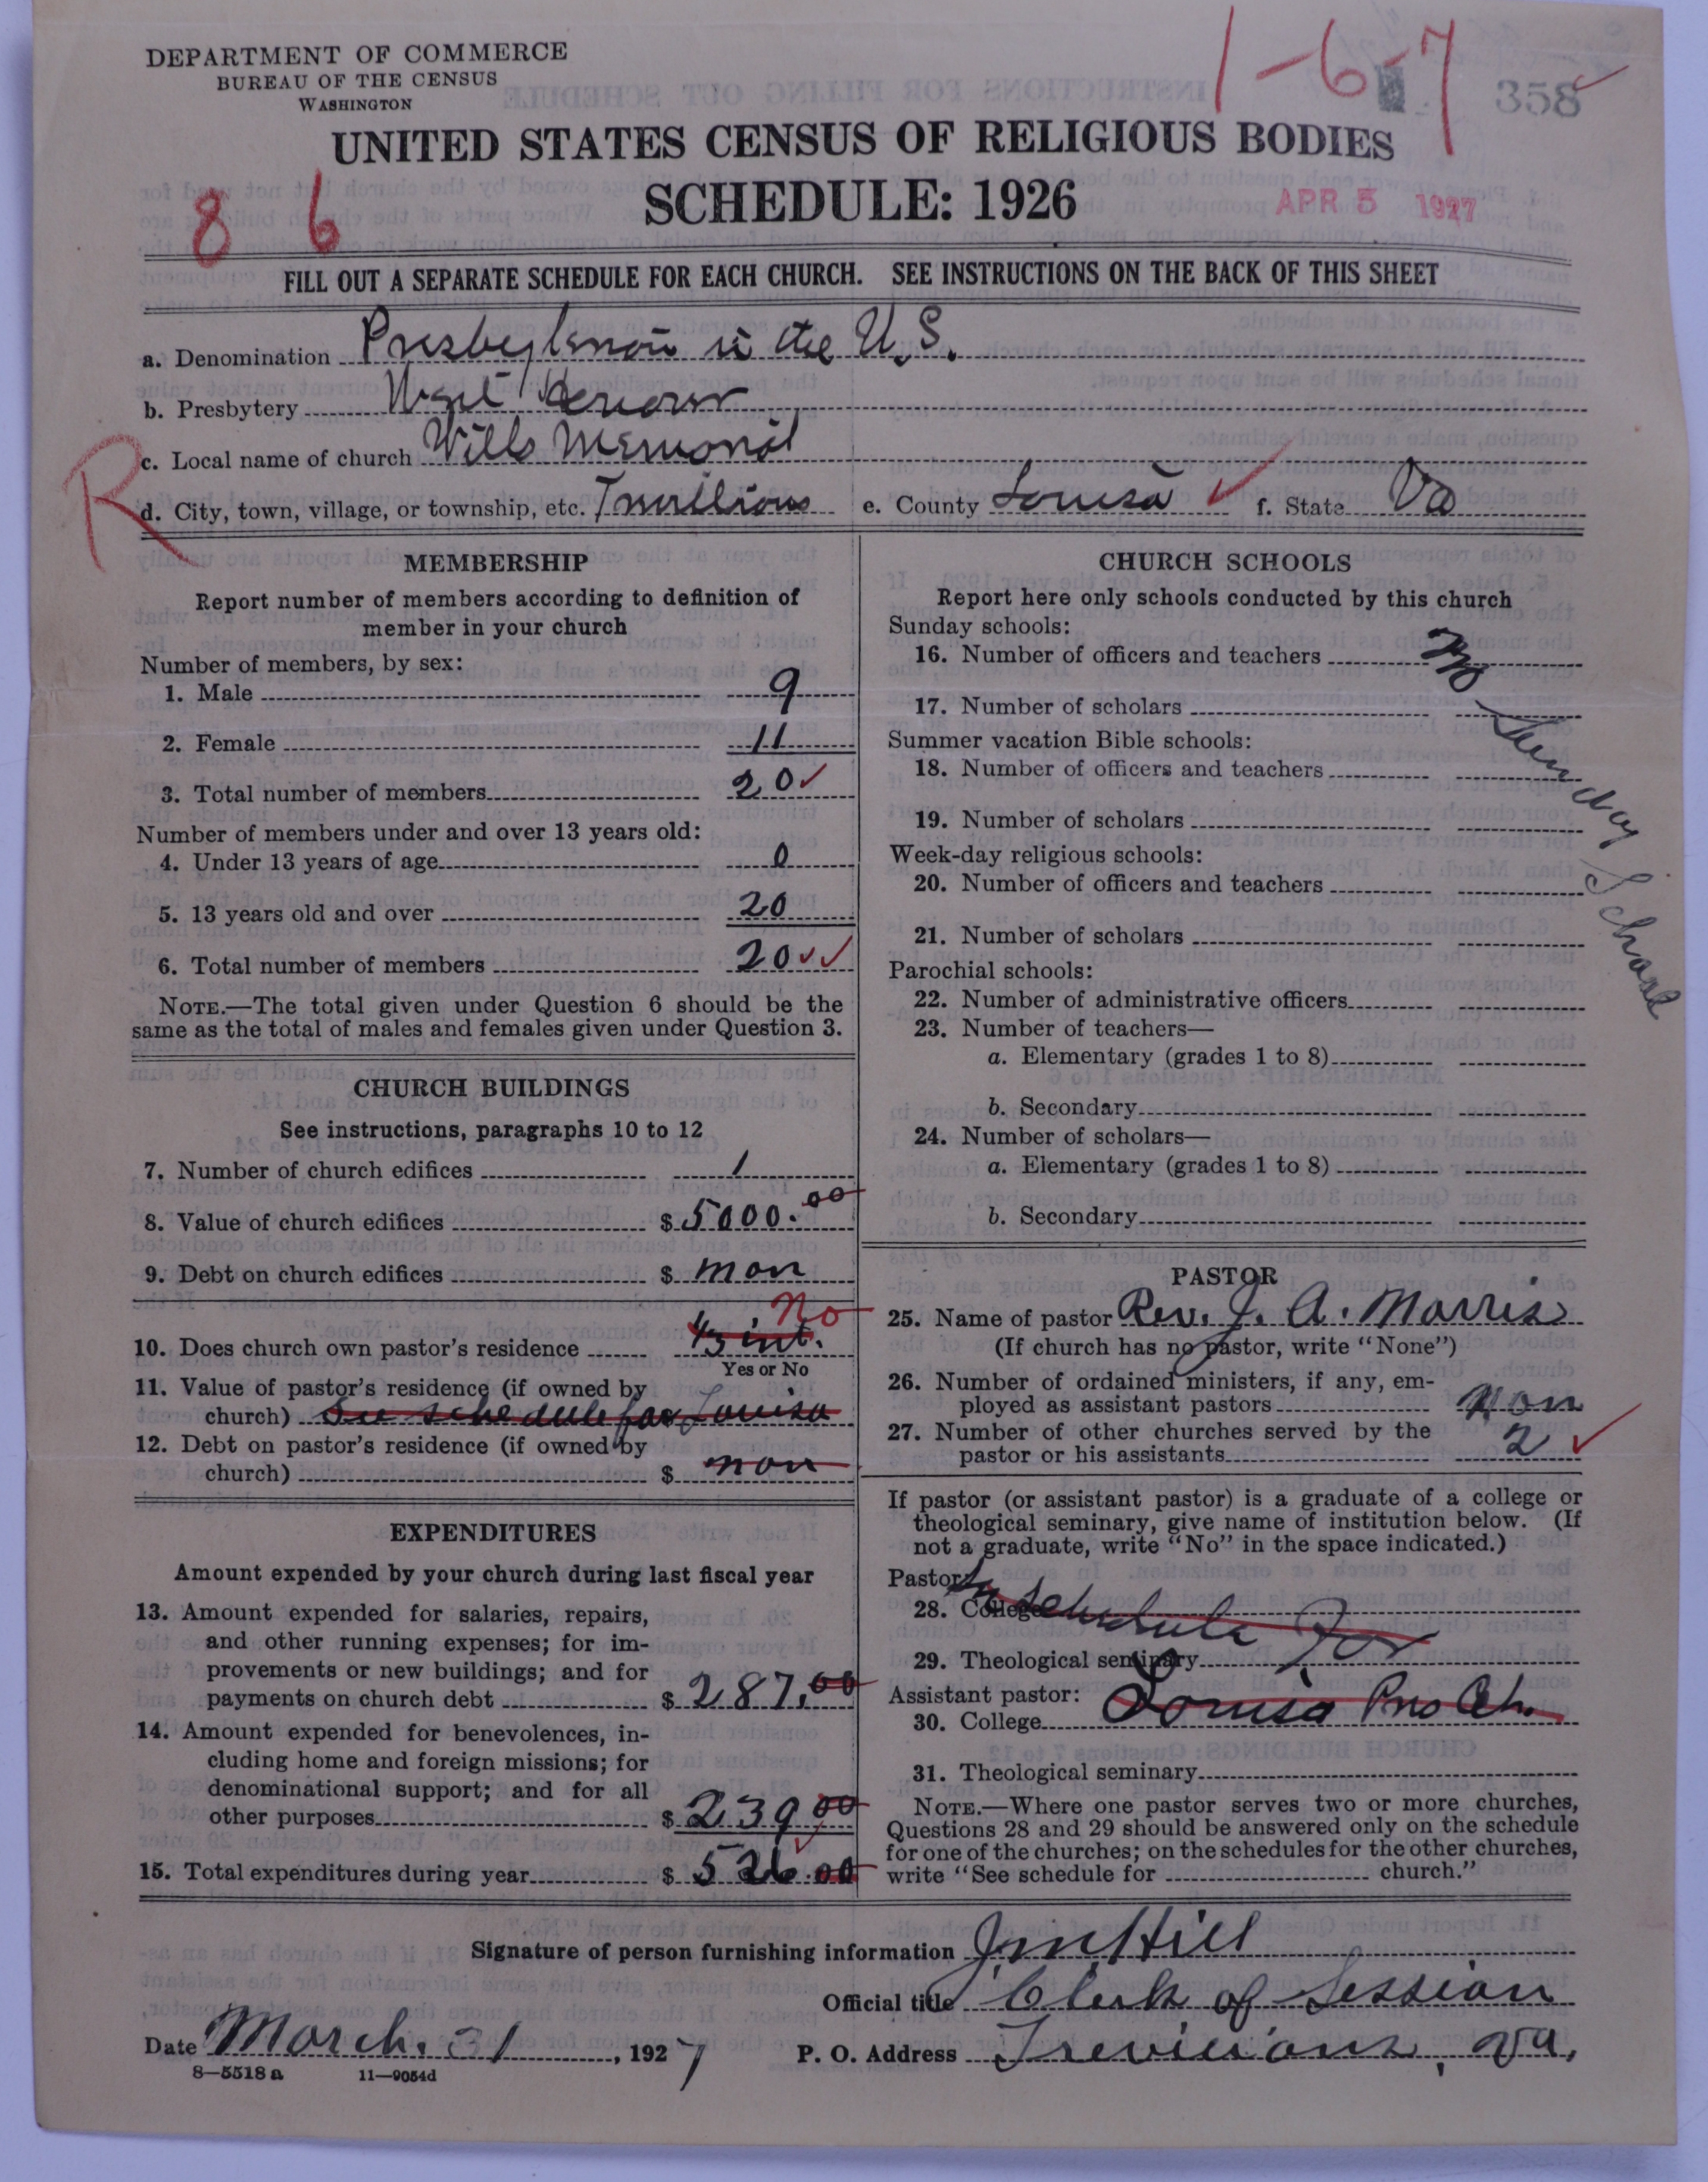 DEPARTMENT OF COMMERCE
BUREAU OF THE CENSUS
WASHINGTON
1-6-7
358
UNITED STATES CENSUS OF RELIGIOUS BODIES
SCHEDULE: 1926
8 6
APR 5 1927
FILL OUT A SEPARATE SCHEDULE FOR EACH CHURCH. SEE INSTRUCTIONS ON THE BACK OF THIS SHEET
a. Denomination Presbyterian in the U.S.
b. Presbytery West Hanover
c. Local name of church Wills Memorial
R
d. City, town, village, or township, etc. e. County Louisa f. State Va
MEMBERSHIP
Report number of members according to definition of
member in your church
Number of members, by sex:
1. Male 9
2. Female 11
3. Total number of members 20
Number of members under and over 13 years old:
4. Under 13 years of age 0
5. 13 years old and over 20
6. Total number of members 20
NOTE.—The total given under Question 6 should be the
same as the total of males and females given under Question 3.
CHURCH BUILDINGS
See instructions, paragraphs 10 to 12
7. Number of church edifices 1
8. Value of church edifices $ 5000.00
9. Debt on church edifices $ non
No
10. Does church own pastor's residence 1/3 int.
Yes or No
11. Value of pastor's residence (if owned by
church) See schedule for Louisa
12. Debt on pastor's residence (if owned by
church) $ non
EXPENDITURES
Amount expended by your church during last fiscal year
13. Amount expended for salaries, repairs,
and other running expenses; for im-
provements or new buildings; and for
payments on church debt $ 287.00
14. Amount expended for benevolences, in-
cluding home and foreign missions; for
denominational support; and for all
other purposes $ 239 00
15. Total expenditures during year $ 526.00
CHURCH SCHOOLS
Report here only schools conducted by this church
Sunday schools:
16. Number of officers and teachers
No Sunday School
17. Number of scholars
Summer vacation Bible schools:
18. Number of officers and teachers
19. Number of scholars
Week-day religious schools:
20. Number of officers and teachers
21. Number of scholars
Parochial schools:
22. Number of administrative officers
23. Number of teachers—
a. Elementary (grades 1 to 8)
b. Secondary
24. Number of scholars—
a. Elementary (grades 1 to 8)
b. Secondary
PASTOR
25. Name of pastor Rev. J. A. Morris
(If church has no pastor, write "None")
26. Number of ordained ministers, if any, em-
ployed as assistant pastors Non
27. Number of other churches served by the
pastor or his assistants 2
If pastor (or assistant pastor) is a graduate of a college or
theological seminary, give name of institution below. (If
not a graduate, write "No" in the space indicated.)
Pastor:
28. College Schedule For
29. Theological seminary
Assistant pastor: Louisa Ch.
30. College
31. Theological seminary
NOTE.—Where one pastor serves two or more churches,
Questions 28 and 29 should be answered only on the schedule
for one of the churches; on the schedules for the other churches,
write "See schedule for church."
Signature of person furnishing information J. M. Hill
Official title Clerk of Session
Date March. 31, 1927 P. O. Address Trevilians, Va.
8—5518 a 11—9054d